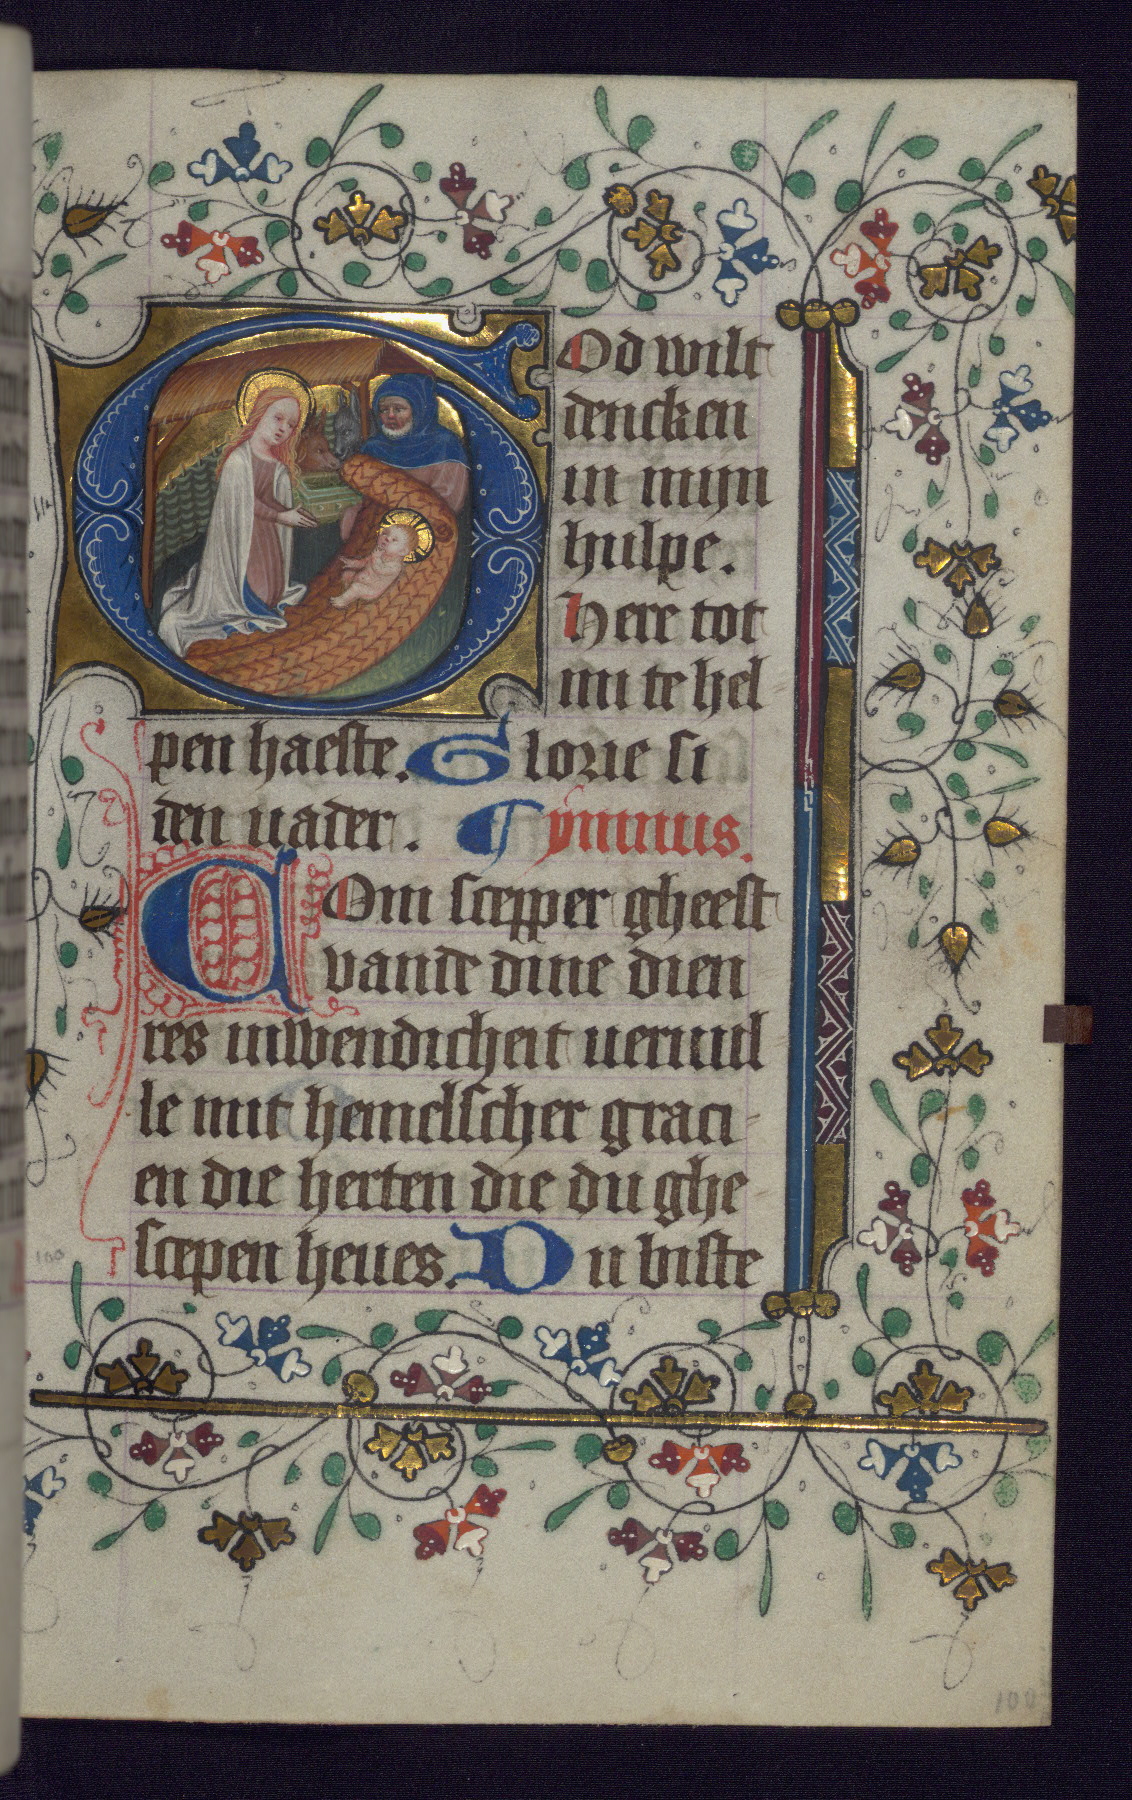 God wilt
dencken
in mijn
hulpe.
Here tot
mi te hel
pen haeste. Glorie si
den uader. ymnus.
Com scepper gheest
vande dine dien
res inwendicheit ueruul
le mit hemelscher graci
en die herten die du ghe
scepen heues. Du biste
100
100